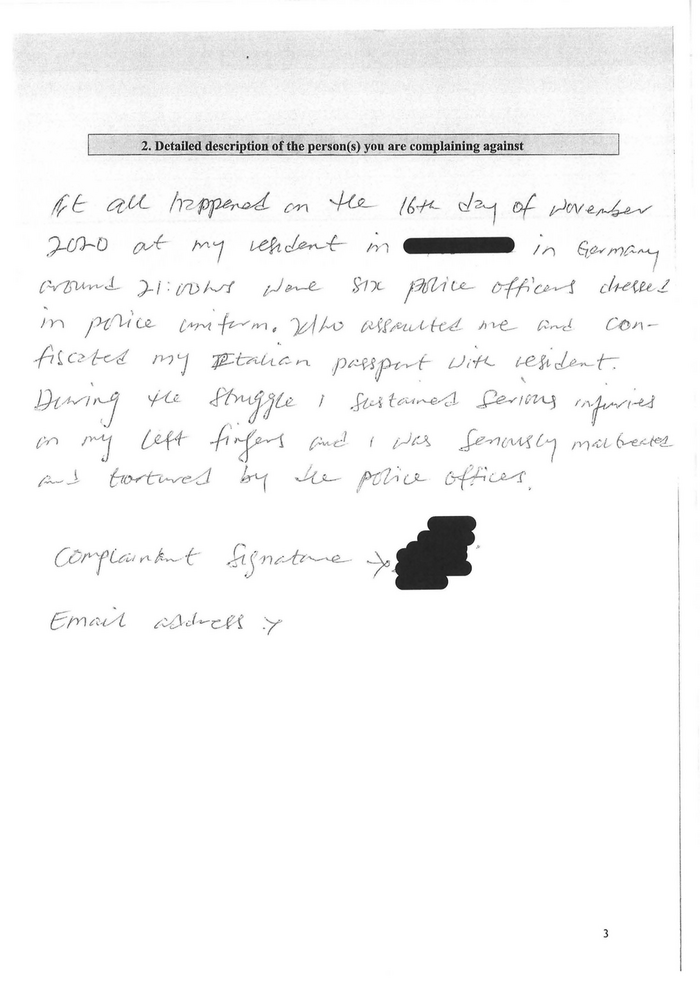 2. Detailed description of the person(s) you are complaining against
It all happened on the 16th day of November
2020 at my resident in in Germany
around 21:00hrs were six police officers dressed
in police uniform. Who assaulted me and con-
fiscated my Italian passport with resident.
During the struggle I sustained serious injuries
on my left fingers and I was seriously maltreated
and tortured by the police offices.
Complainant Signature →
Email address :
3